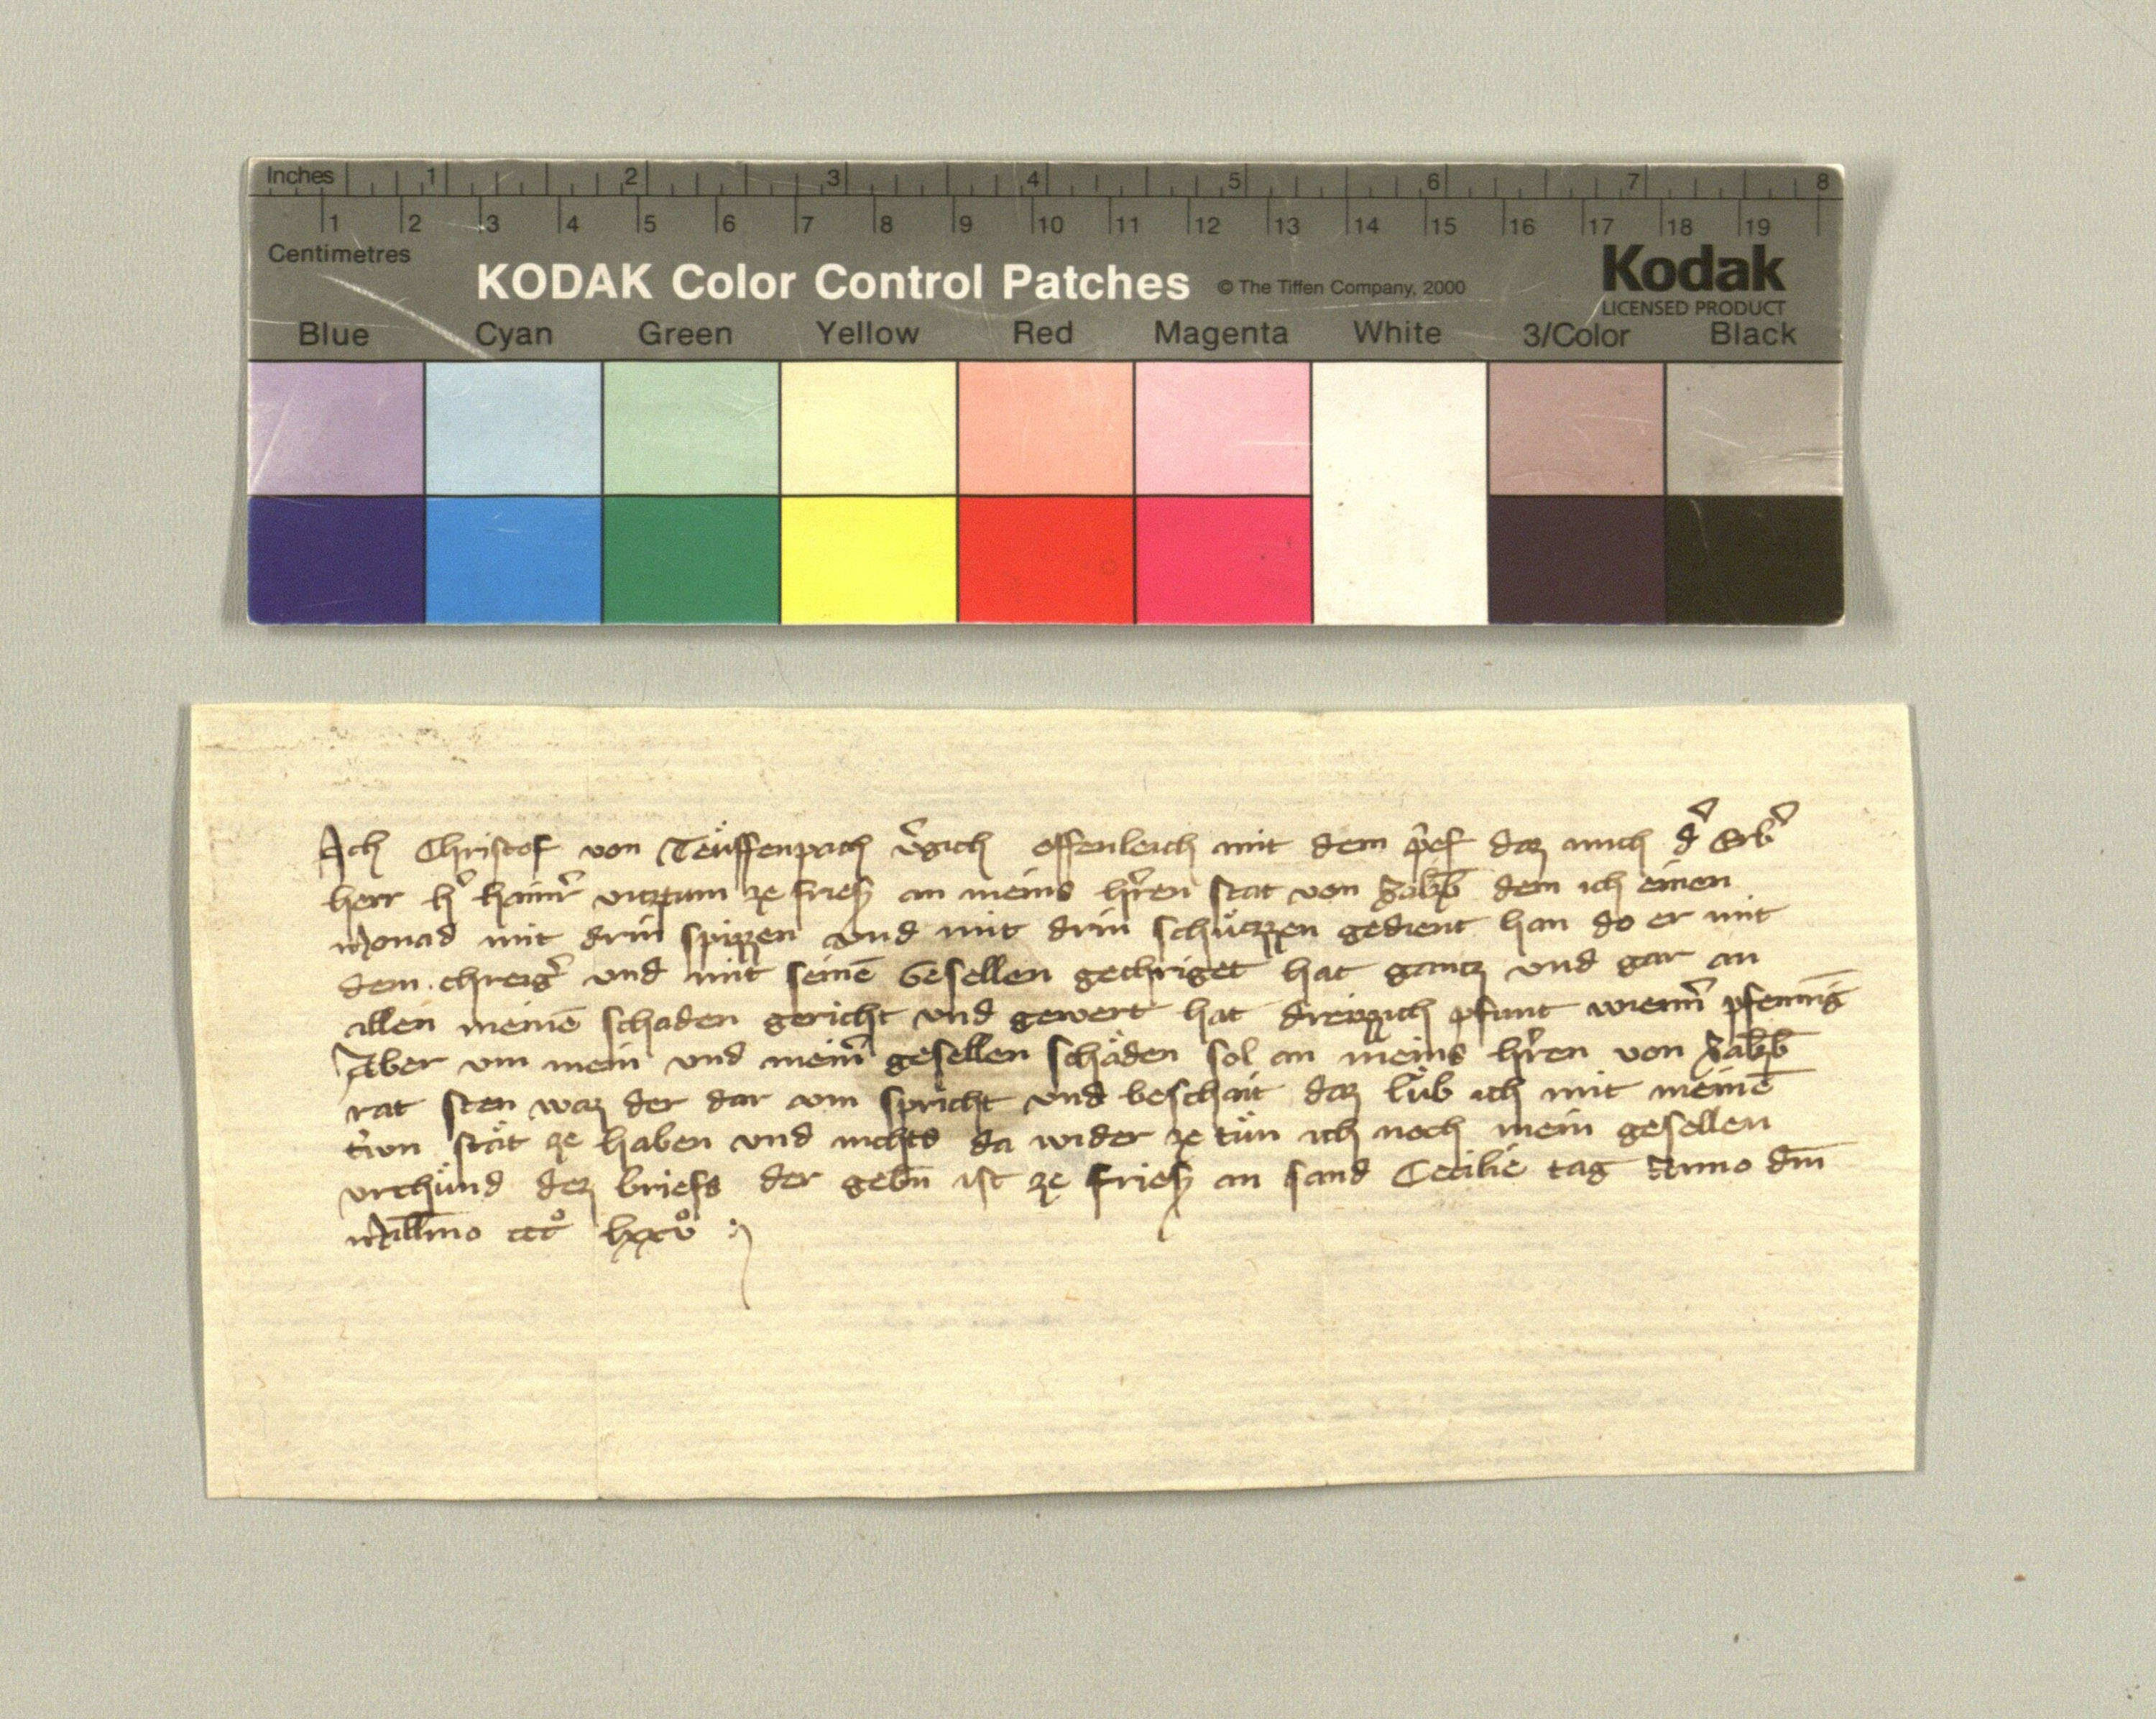 Inches 1 2 3 4 5 6 7 8
1 2 3 4 5 6 7 8 9 10 11 12 13 14 15 16 17 18 19
Centimetres
KODAK Color Control Patches © The Tiffen Company, 2000 Kodak
LICENSED PRODUCT
Blue Cyan Green Yellow Red Magenta White 3/Color Black
Ich Christof von Teuffenpach v̾gich offenleich mit dem p̾ef daz mich d̾ Erb̾
herr h̾ haim̾ vitztum ze Fries an meins hr̾en stat von Salzb̄ dem ich einen
Monad mit drin spizzen vnd mit drin schützzen gedient han do er mit
dem chreig̾ vnd mit seinē Gesellen gechriget hat gantz vnd gar an
allen meinē schaden gericht vnd gewert hat dreizzich pfunt wienn̾ pfennīg
Aber vm mein vnd mein̾ gesellen schäden sol an meins hr̾en von Salzb̄
rat sten waz der dar vm spricht vnd beschait daz lüb ich mit meinē
tr̾wn stät ze haben vnd nichts da wider ze tün ich noch mein gesellen
vrchünd dez briefs der gebn̄ ist ze Fries an sand Cecilie tag Anno dm̄
Mill̄mo cccͦ lxxvͦ